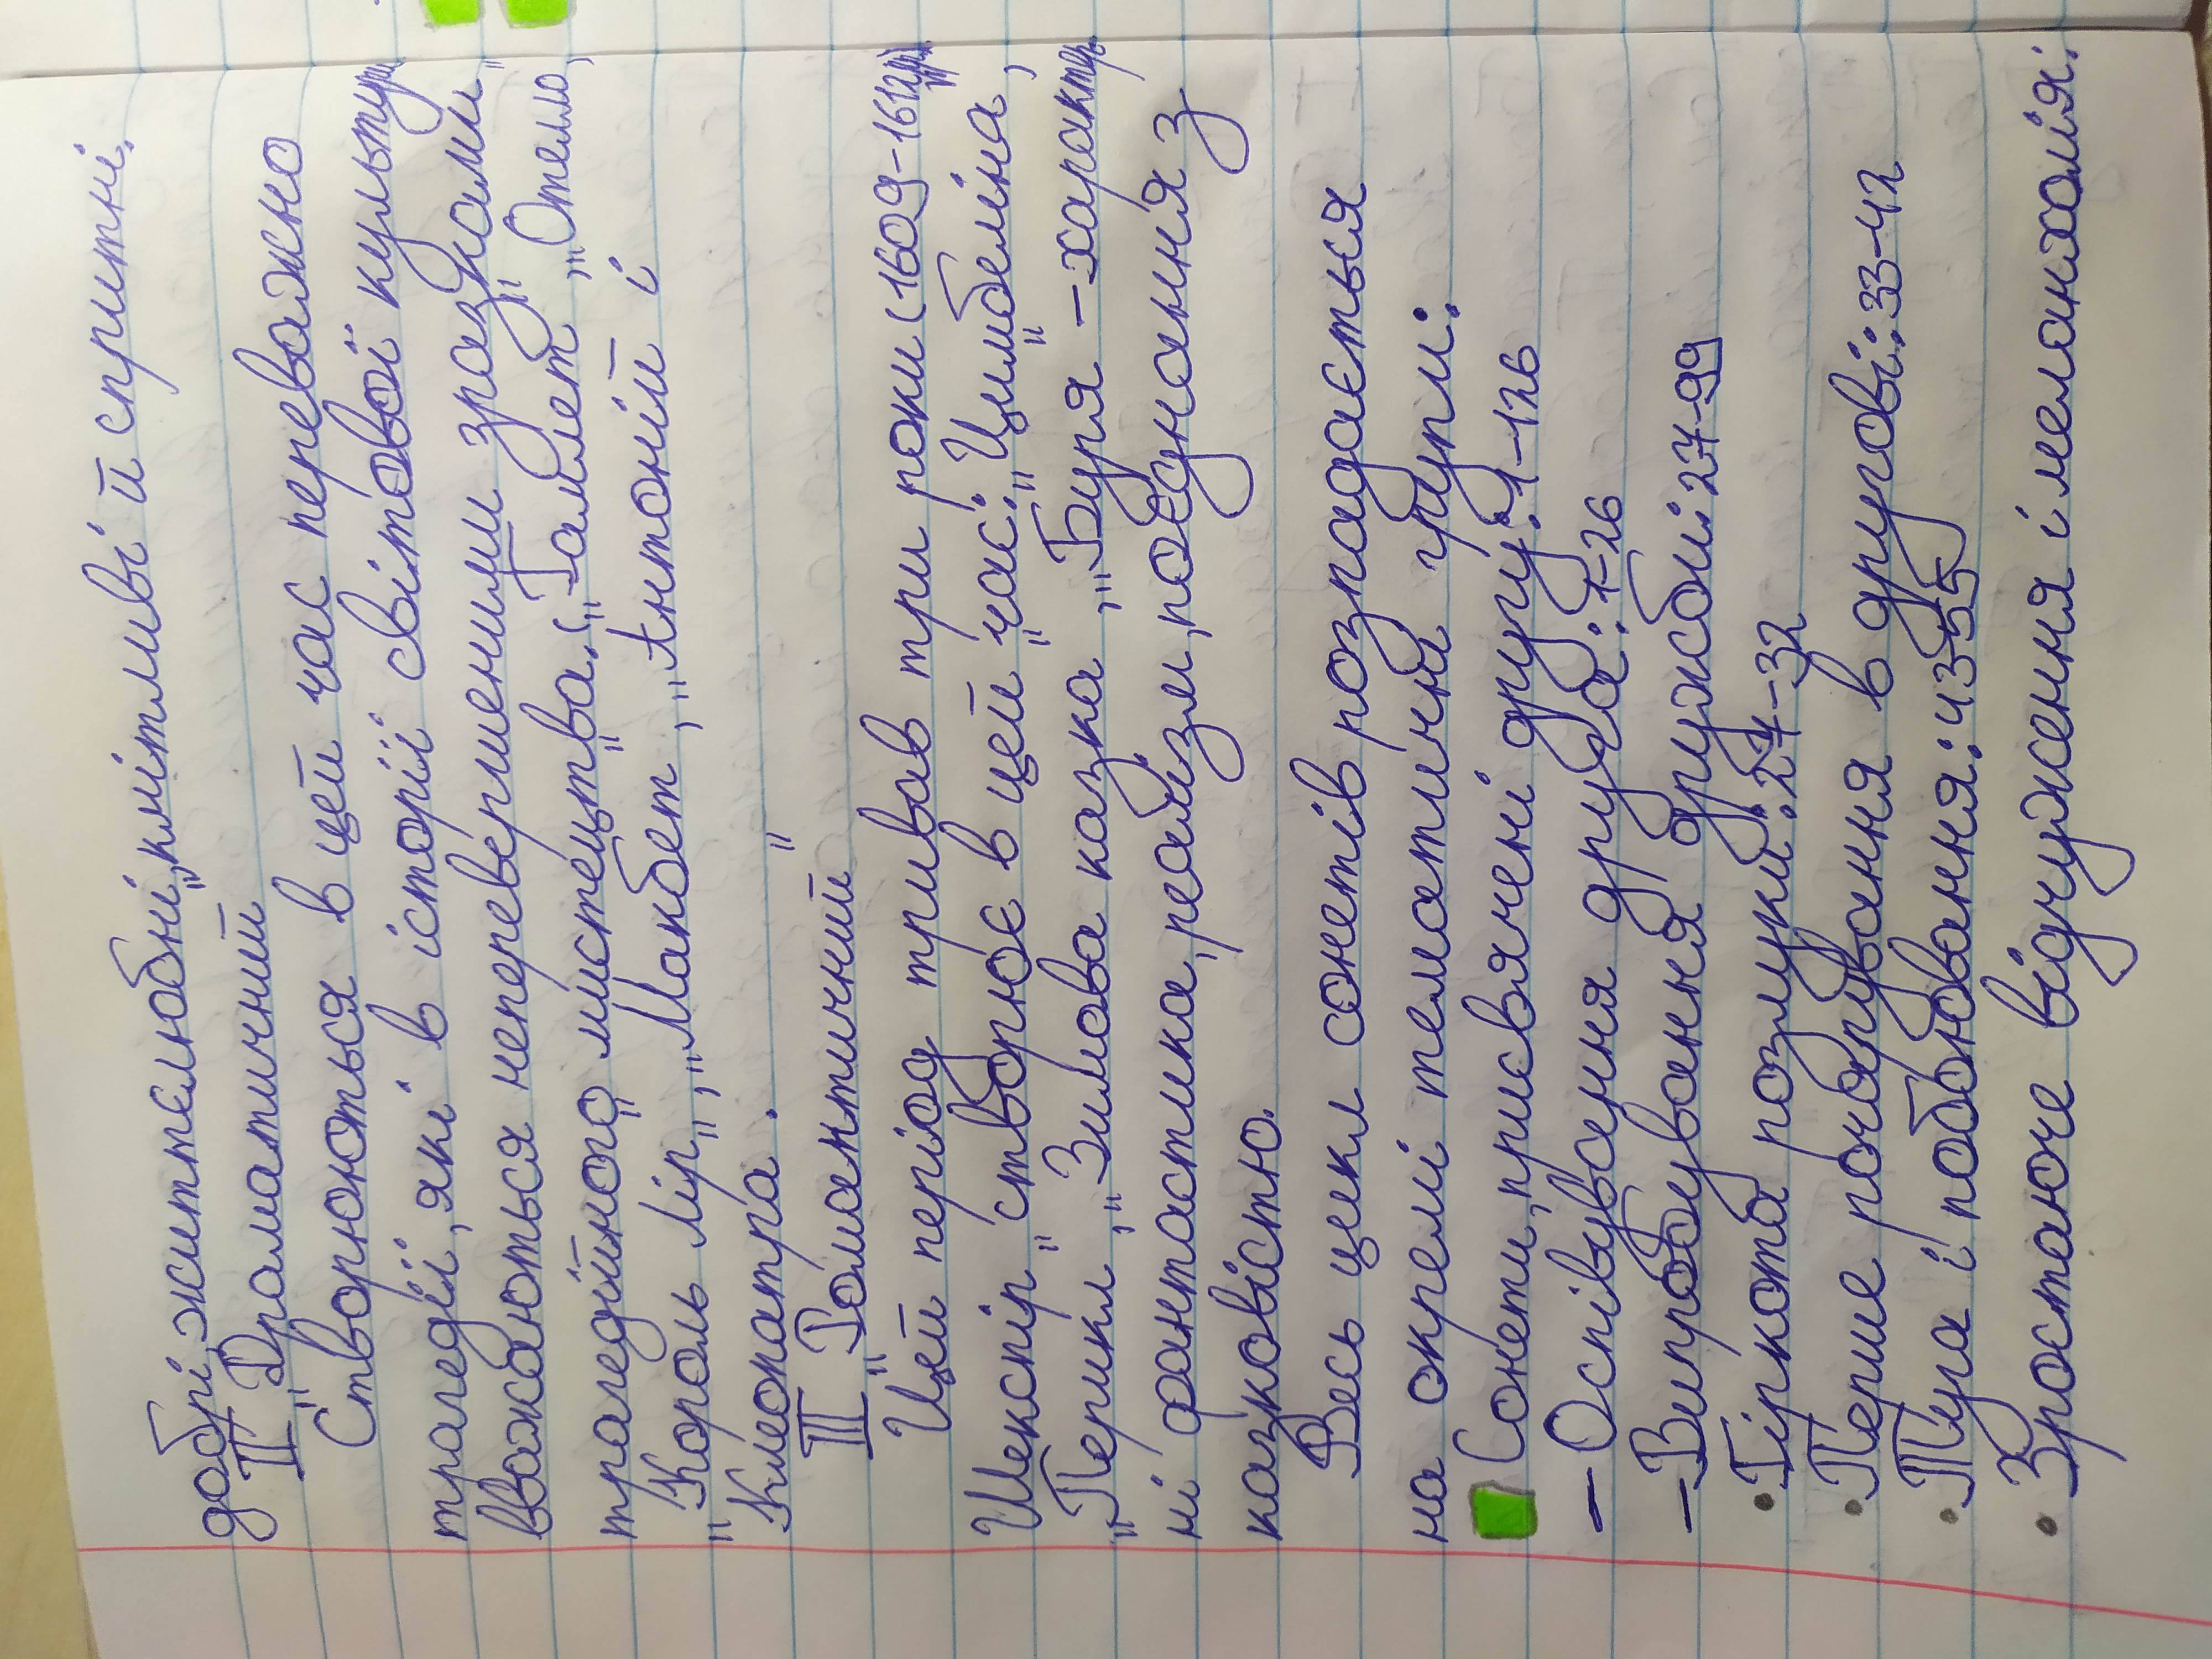 добрі, життєлюбні, кмітливі й спритні.
II „Драматичний"
Створюються в цей час переважно
трагедії, які в історії світової культури
вважаються неперевершеними зразками
трагедійного мистецтва. („Гамлет", „Отелло",
„Король Лір", „Макбет", „Антоній і
Клеопатра".
III „Романтичний"
Цей період тривав три роки (1609-1612рр)
Шекспір створює в цей час: „Цимбеліна",
„Перикл", „Зимова казка", „Буря" – характер
ні фантастика, реалізм, поєднання з
казковістю.
Весь цикл сонетів розпадається
на окремі тематичні групи:
Сонети, присвячені другу: 1-126
– Оспівування друга: 1-26
– Випробування дружби: 27-99
• Гіркота розлуки: 27-32
• Перше розчарування в другові: 33-42
• Туга і побоювання: 43-55
• Зростаюче відчуження і меланхолія: